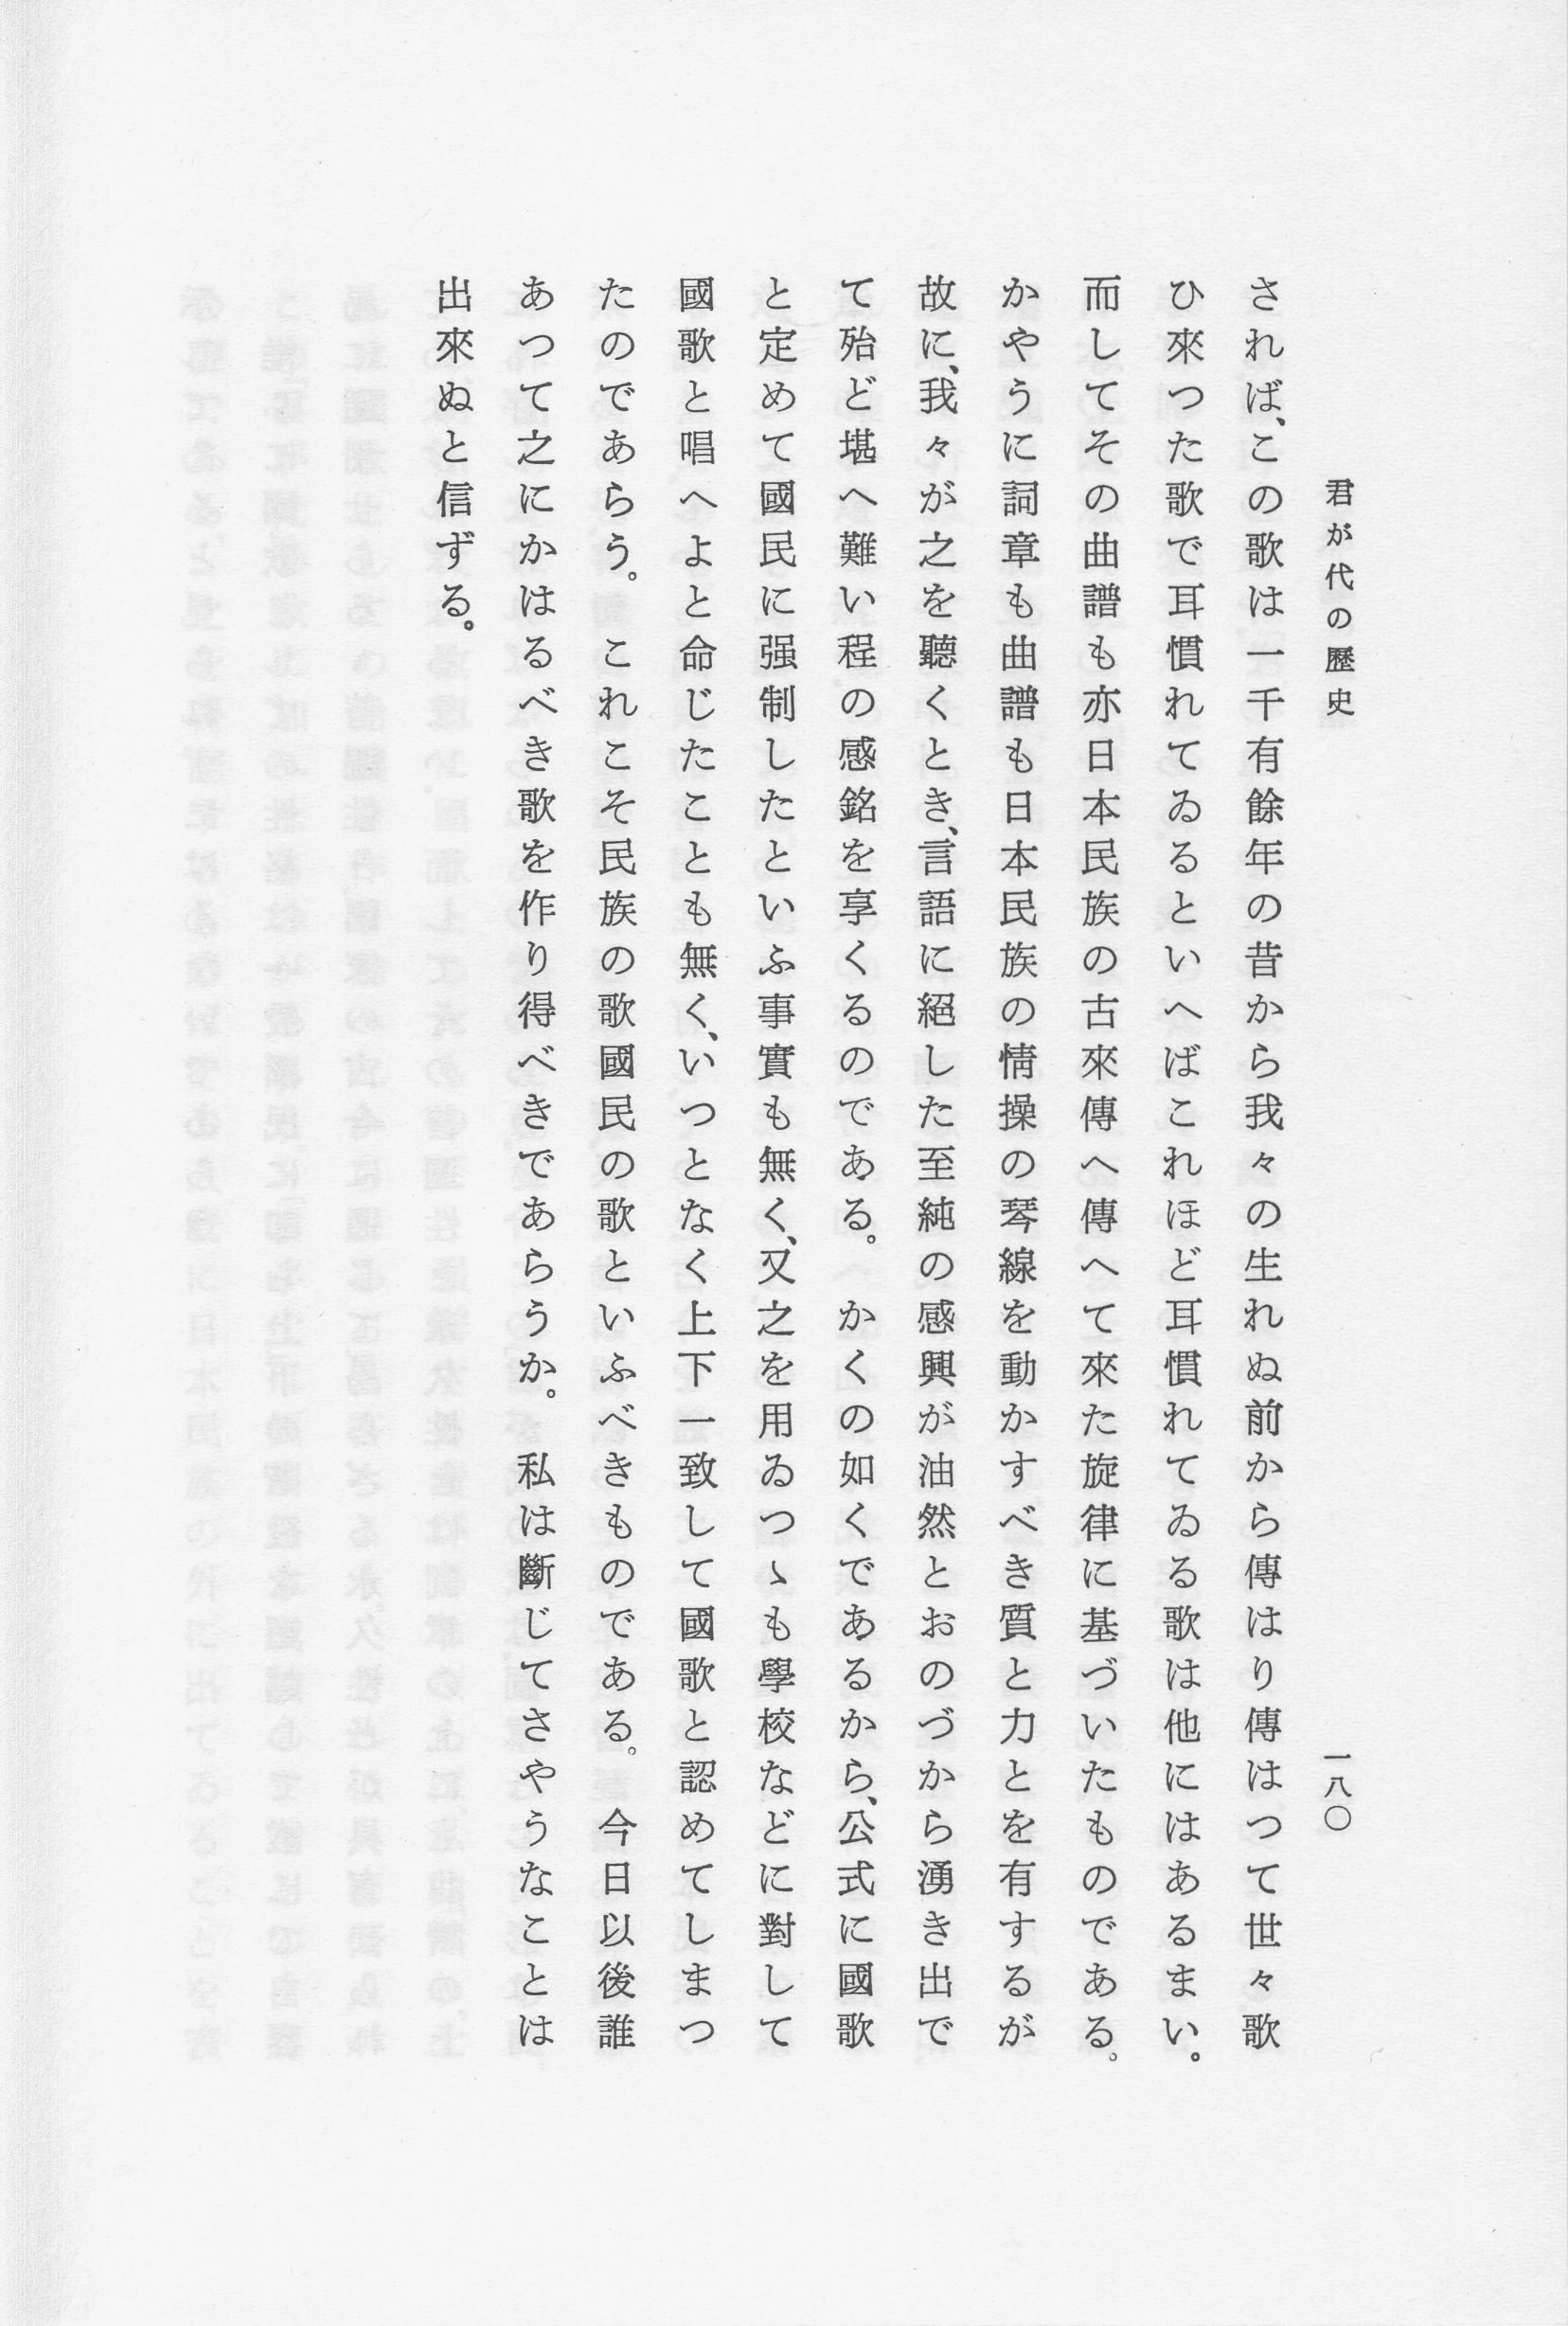 君が代の歷史
一八〇
されば、この歌は一千有餘年の昔から我々の生れぬ前から傳はり傳はつて世々歌
ひ來つた歌で耳慣れてゐるといへばこれほど耳慣れてゐる歌は他にはあるまい。
而してその曲譜も亦日本民族の古來傳へ傳へて來た旋律に基づいたものである。
かやうに詞章も曲譜も日本民族の情操の琴線を動かすべき質と力とを有するが
故に、我々が之を聽くとき、言語に絕した至純の感興が油然とおのづから湧き出で
て殆ど堪へ難い程の感銘を享くるのである。かくの如くであるから、公式に國歌
と定めて國民に强制したといふ事實も無く、又之を用ゐつゝも學校などに對して
國歌と唱へよと命じたことも無く、いつとなく上下一致して國歌と認めてしまつ
たのであらう。これこそ民族の歌國民の歌といふべきものである。今日以後誰
あつて之にかはるべき歌を作り得べきであらうか。私は斷じてさやうなことは
出來ぬと信ずる。